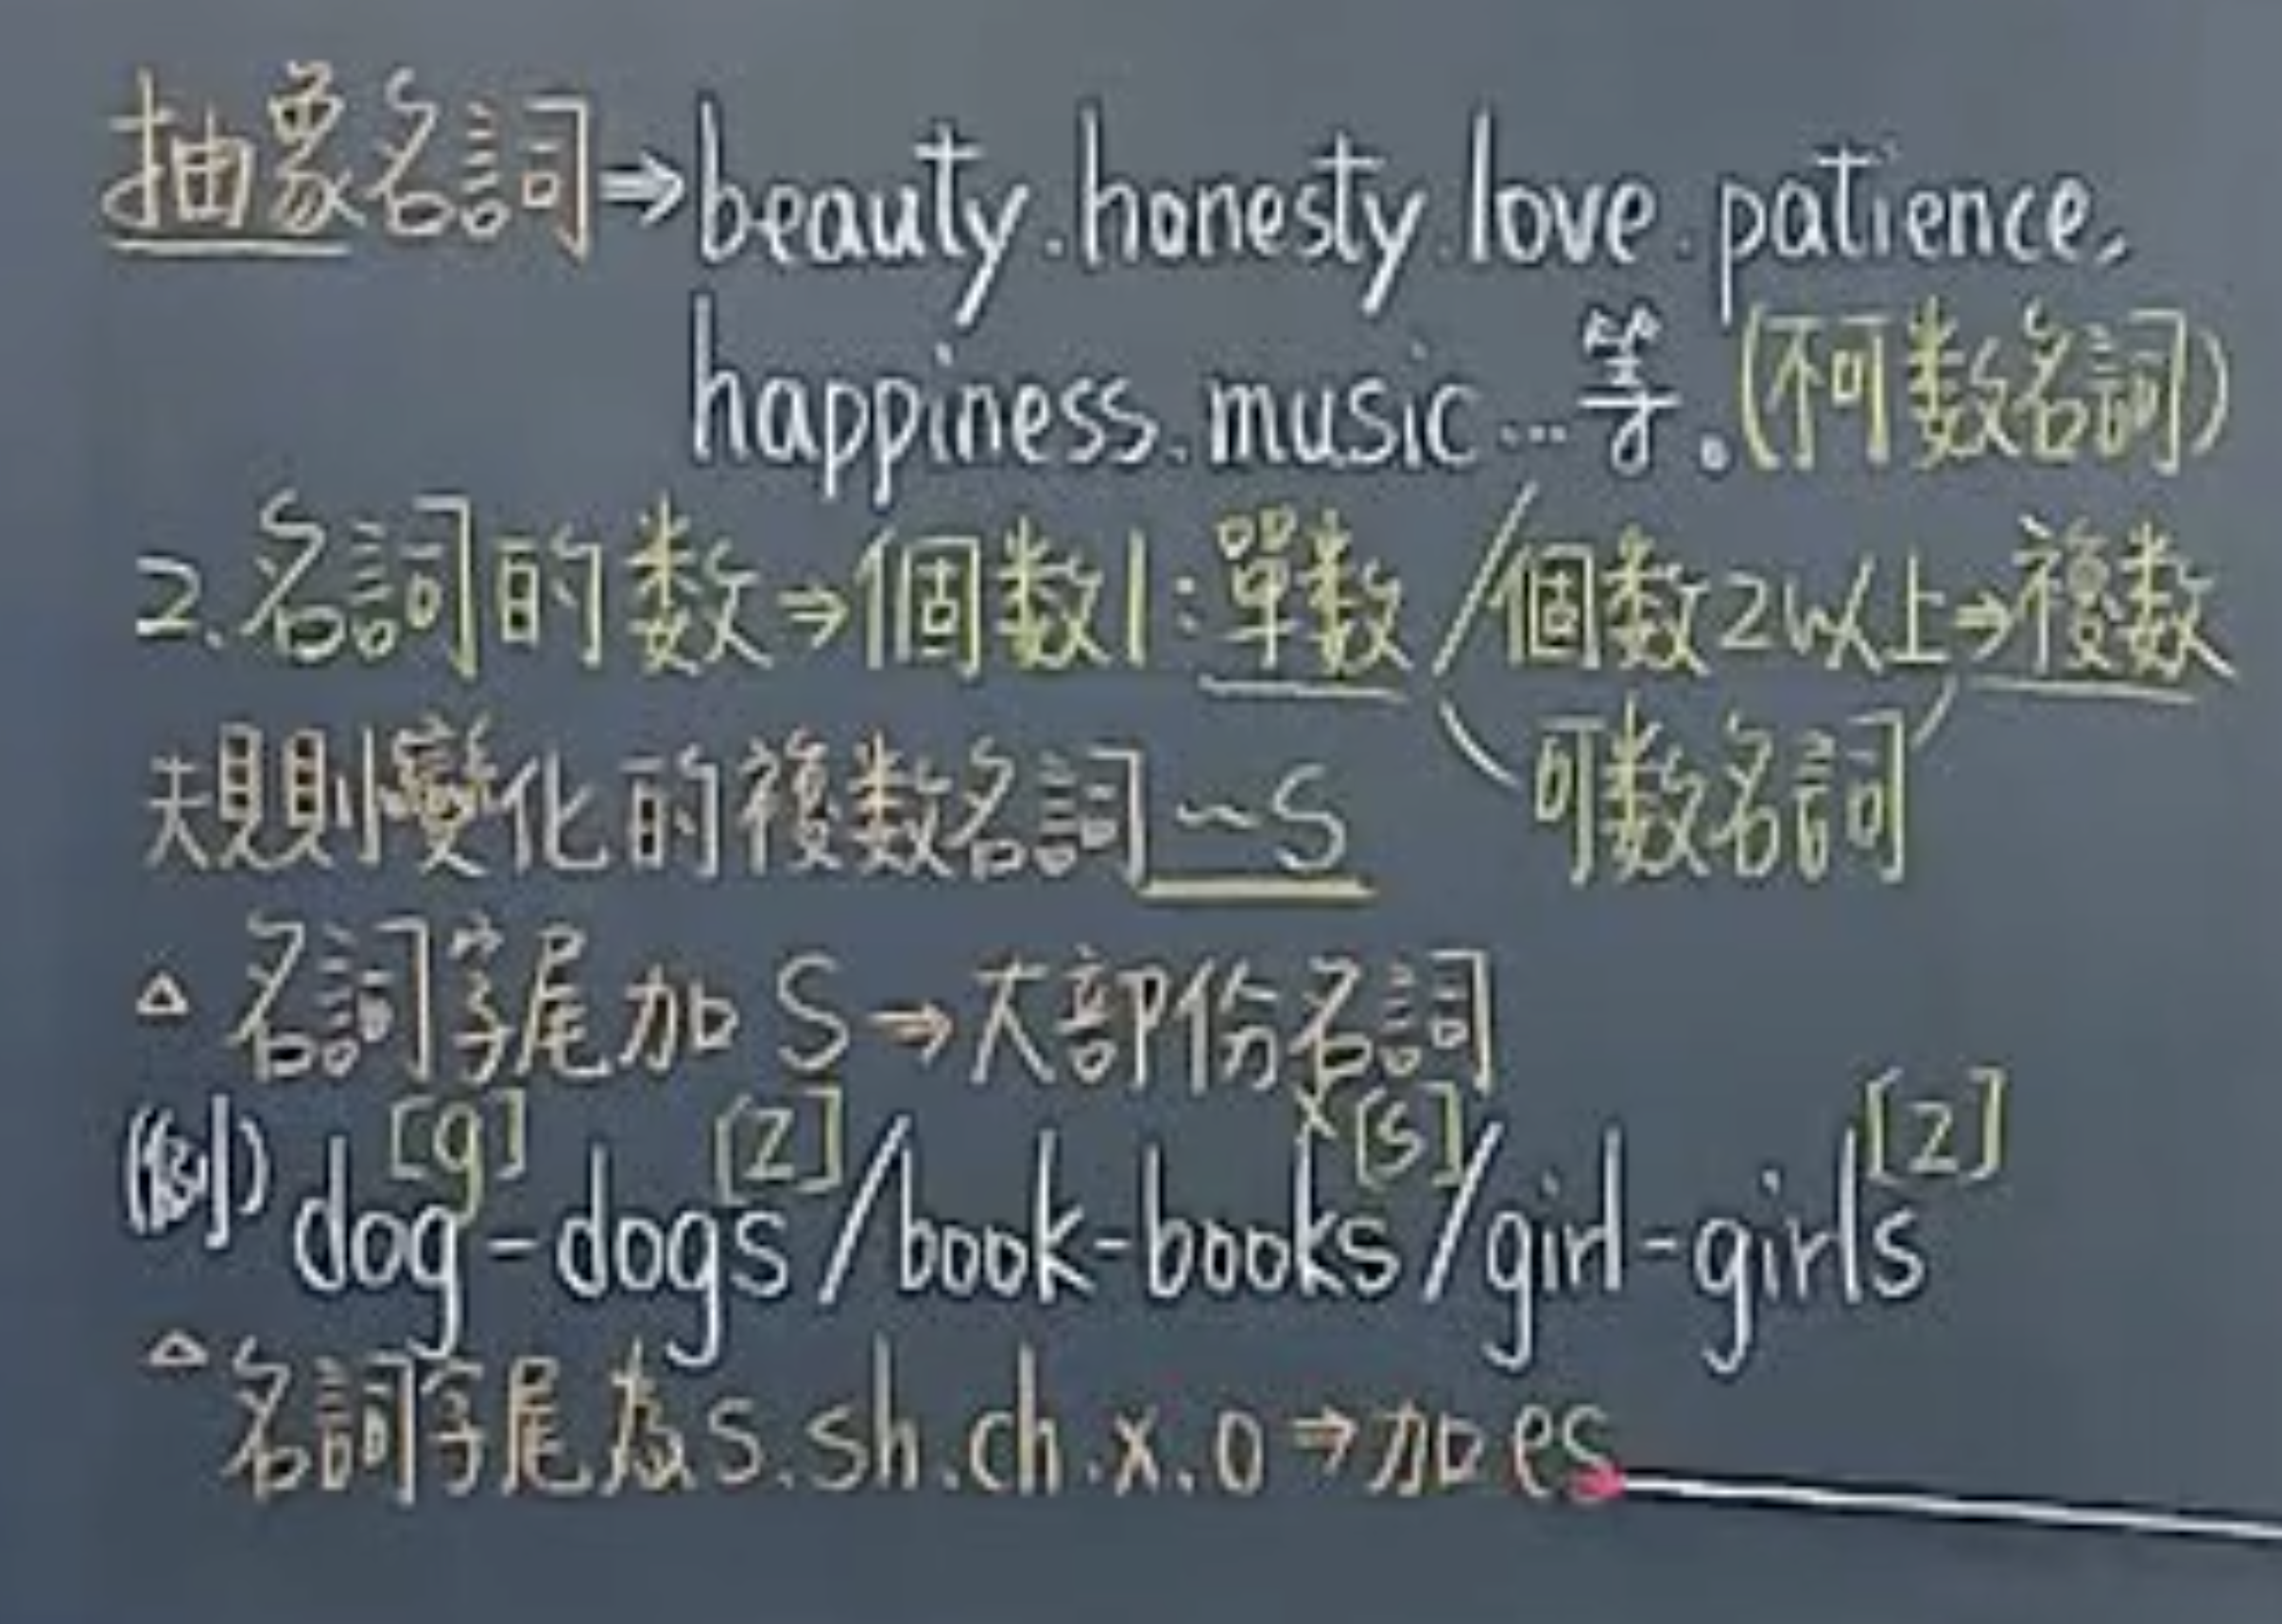 抽象名詞⇒beauty.honesty.love.patience,
happiness.music...等。(不可数名詞)
2.名詞的数⇒個数1:單数/個数2以上⇒複数
(可数名詞)
規則變化的複数名詞~S
△名詞字尾加S→大部份名詞
[g] [z] x[s] [z]
(例)dog-dogs/book-books/girl-girls
△名詞字尾為s.sh.ch.x.o⇒加es